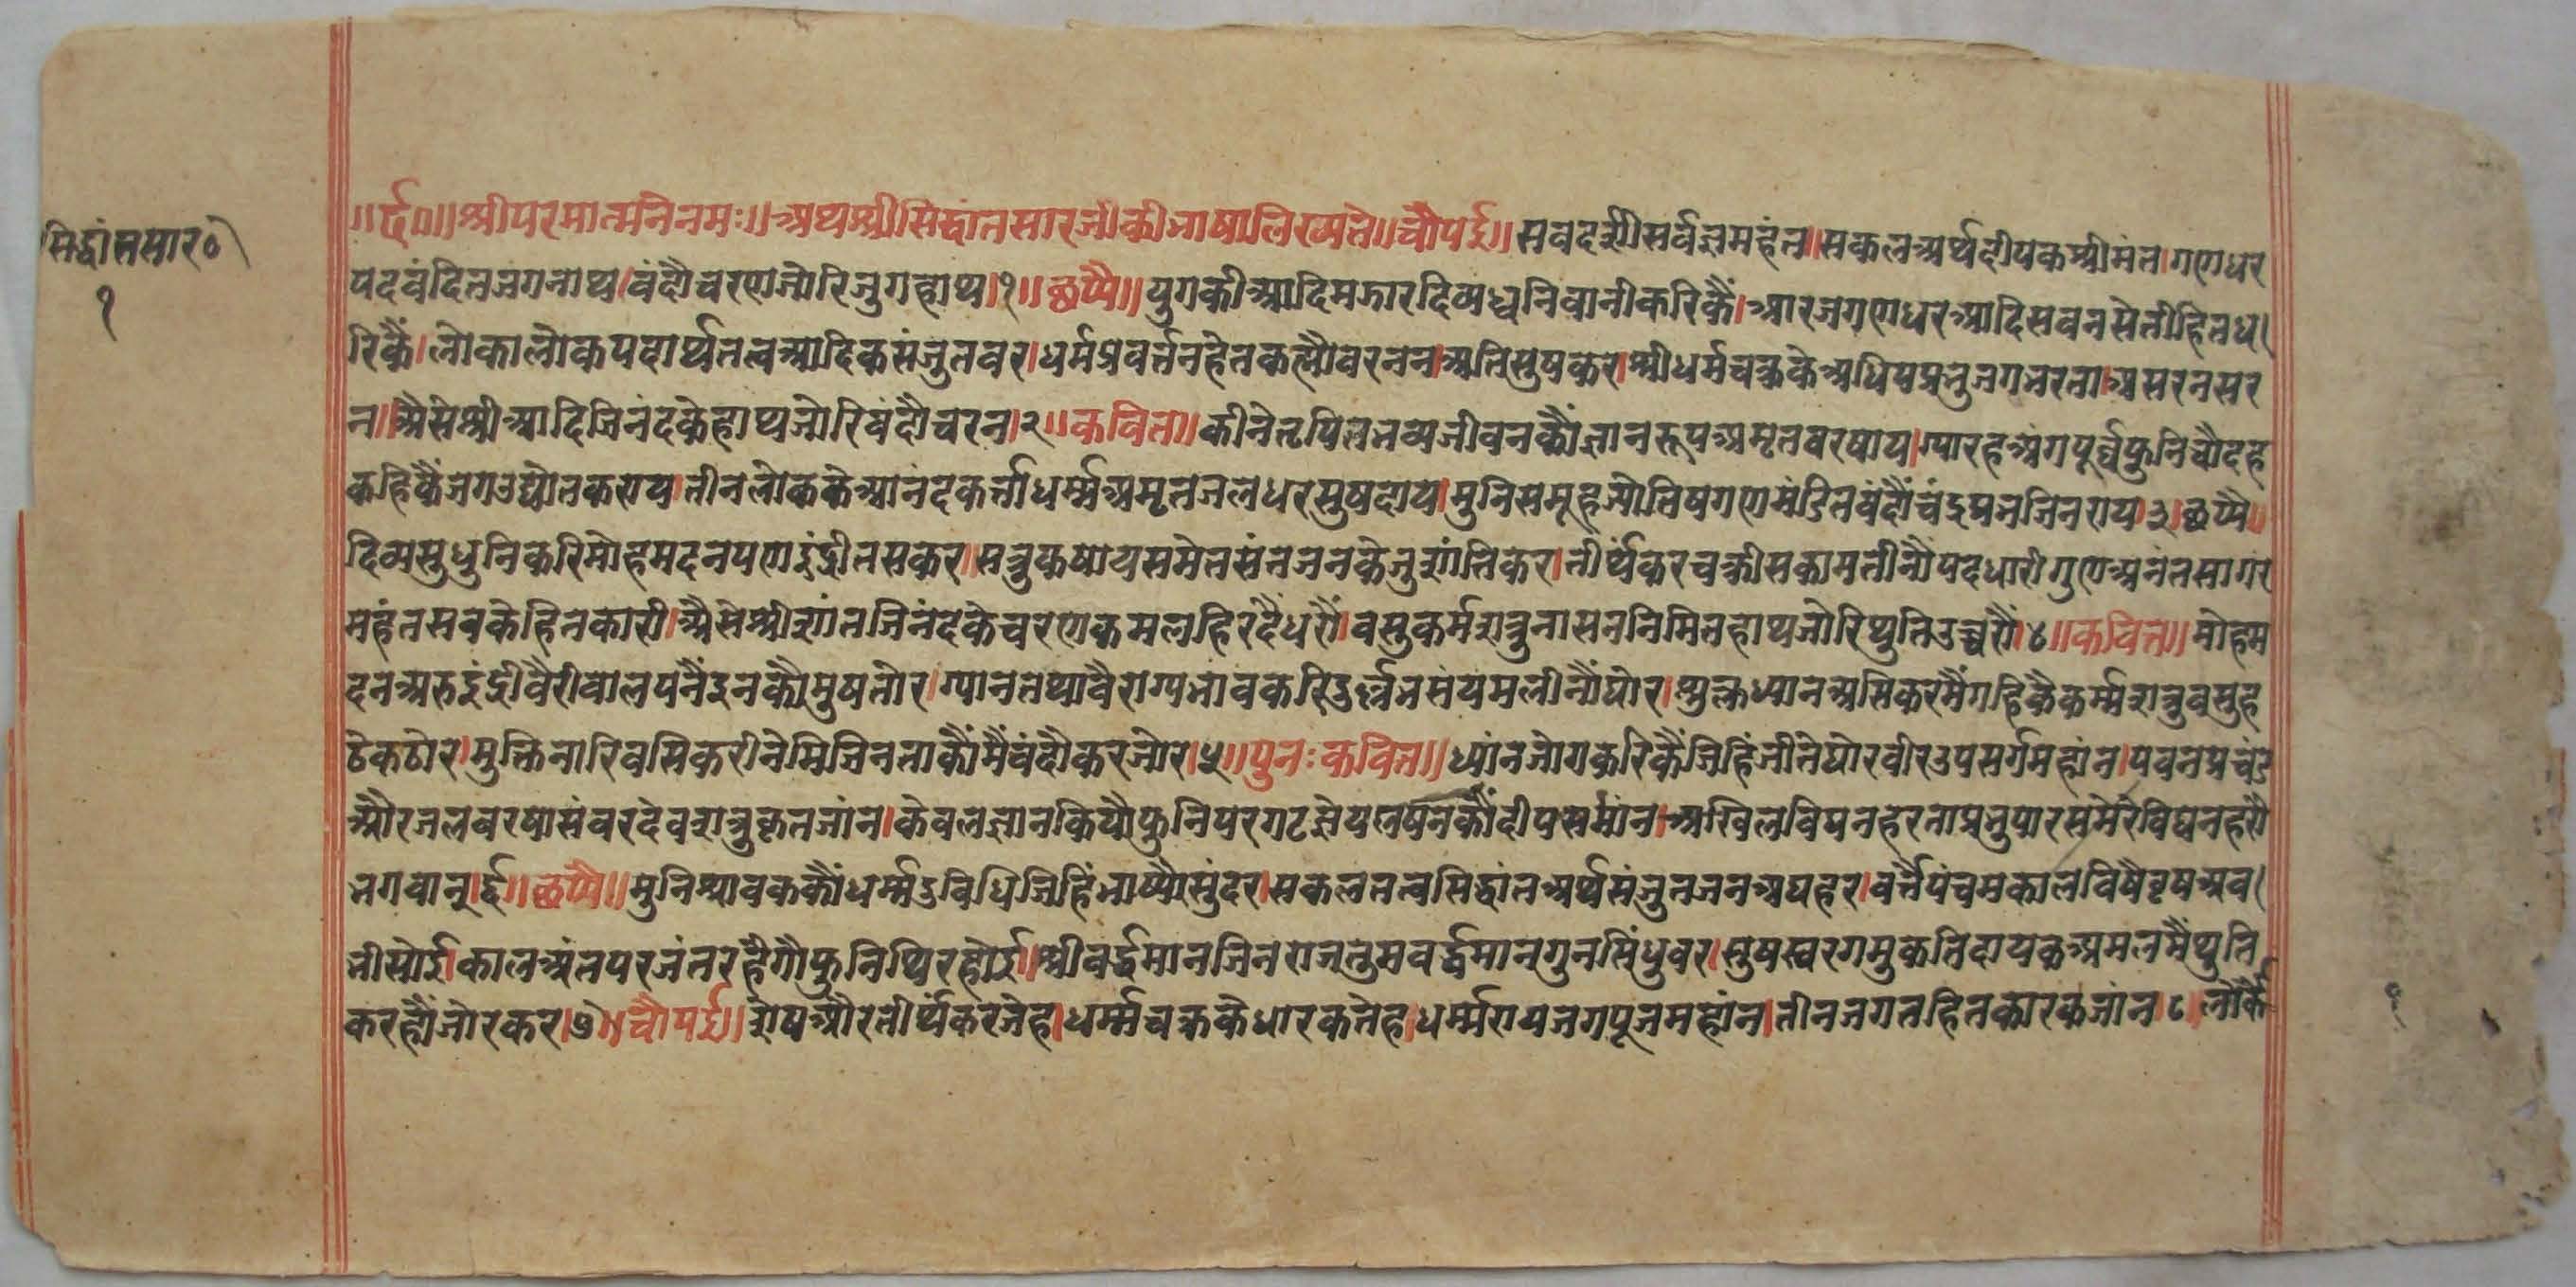 सिद्धांतसार०
१
॥र्द०॥श्रीपरमात्मनेनमः॥अथश्रीसिद्धांतसारजीकीभाषालिख्यते॥चौपई॥सवदर्शीसर्वज्ञमहंत॥सकलअर्थदीपकश्रीमंत।गणधर
पदवंदितजगनाथ।वंदौचरणजोरिजुगहाथ।१॥छप्पै॥युगकीआदिमझारदिव्यध्वनिवानीकरिकैं।आरजगणधरआदिसवनसेतीहितध।
रिकैं।लोकालोकपदार्थतत्वआदिकसंजुतवर।धर्मप्रवर्त्तनहेतकत्यौवरनन।अतिसुषकर।श्रीधर्मचक्रकेअधिपप्रभुजगभरता।असरनसर
न॥अैसेश्रीआदिजिनंदकेहाथजोरिवंदौचरन।२॥कवित॥कीनेतृपितभव्यजीवनकौंज्ञानरूपअमृतवरषाय।ग्यारहअंगपूर्व्वफुनिचौदह
कहिकैंजगउद्योतकराय।तीनलोककेआनंदकर्त्ताधर्म्मअमृतजलधरसुषदाय।मुनिसमूहज्योतिषगणमंडितवंदौंचंद्रप्रभजिनराय।३।छप्पै॥
दिव्यसुधुनिकरिमोहमदनपणइंद्रीतसकर।सत्रुकषायसमेतसंतजनकेजुशांतिकर।तीर्थंकरचक्रीसकामतीनौंपदधारीगुणअनंतसागर
महंतसबकेहितकारी।अैसेश्रीशांतजिनंदकेचरणकमलहिरदैधरौं।वसुकर्मशत्रुनासननिमितहाथजोरिथुतिउच्चरौं।४॥कवित॥मोहम
दनअरुइंद्रीवैरीवालपनैंइनकौमुषतोर।ग्यानतथावैराग्यभावकरिदुर्ल्लभसंयमलीनौंघोर।शुक्लध्यानअसिकरमैंगहिकैकर्म्मशत्रुवसुह
ठेकठोर।मुक्तिनारिवसिकरीनेमिजिनताकौंमैंवंदौंकरजोर।५॥पुनःकवित॥ध्यांनजोगकरिकैंजिहिंजीतेघोरवीरउपसर्गमहांन।पवनप्रचंड
औरजलवरषासंवरदेवशत्रुकृतजांन।केवलज्ञानकियौफुनिपरगटज्ञेयलषनकौंदीपसमांन।अखिलविघनहरताप्रभुपारसमेरेविघनहरौ
भगवान्।र्द॥छप्पै॥मुनिश्रावककौंधर्म्मदुविधिजिहिंभाष्यौसुंदर।सकलतत्वसिद्धांतअर्थसंजुतजनअघहर।वर्त्तैपंचमकालविषैवृषअव।
नीसोई।कालअंतपरजंतरहैगौफुनिथिरहोई।श्रीवर्द्धमानजिनराजतुमवर्द्धमानगुनसिंधुवर।सुषस्वरगमुकतिदायकअमलमैंथुति
करहौंजोरकर।७॥चौपई॥शेषऔरतीर्थंकरजेह।धर्म्मचक्रकेधारकतेह।धर्म्मरायजगपूजमहांन।तीनजगतहितकारकजांन।८।लोकै